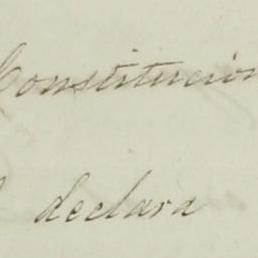 Constitucion
declara